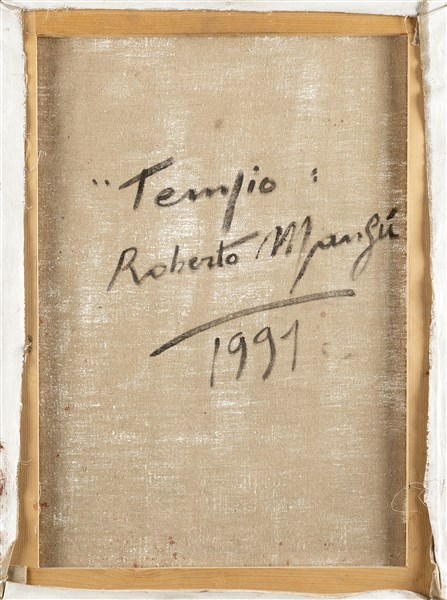 "Tempio:
Roberto Mangú
1991